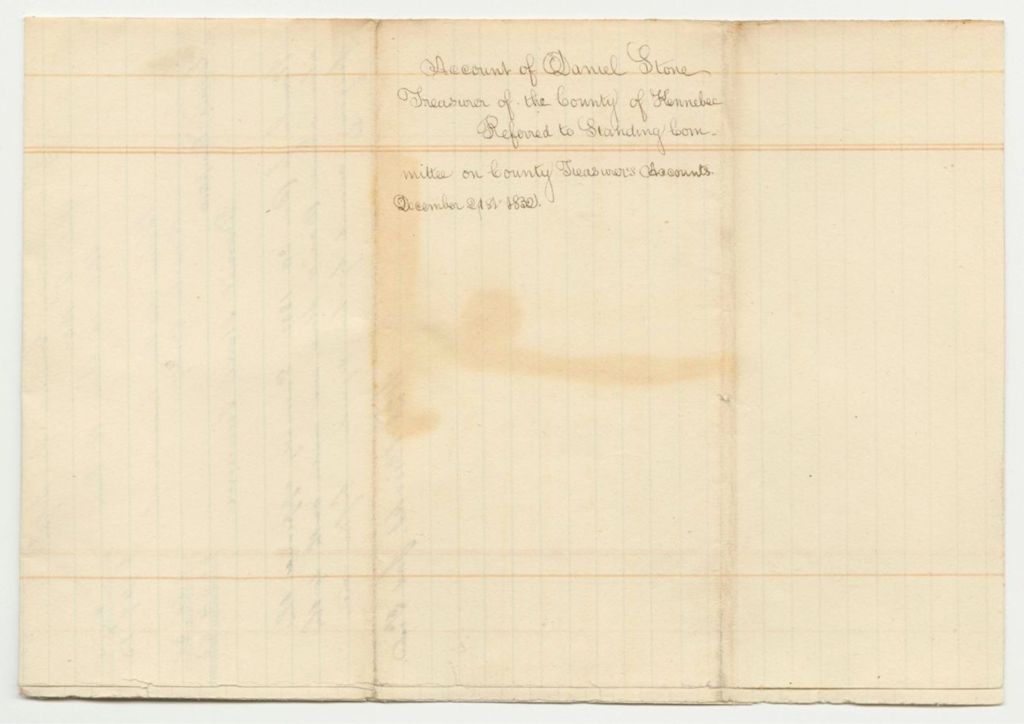 Account of Daniel Stone
Treasurer of the County of Kennebec
Referred to Standing Com-
mittee on County Treasurer's Accounts.
December 21st 1832.